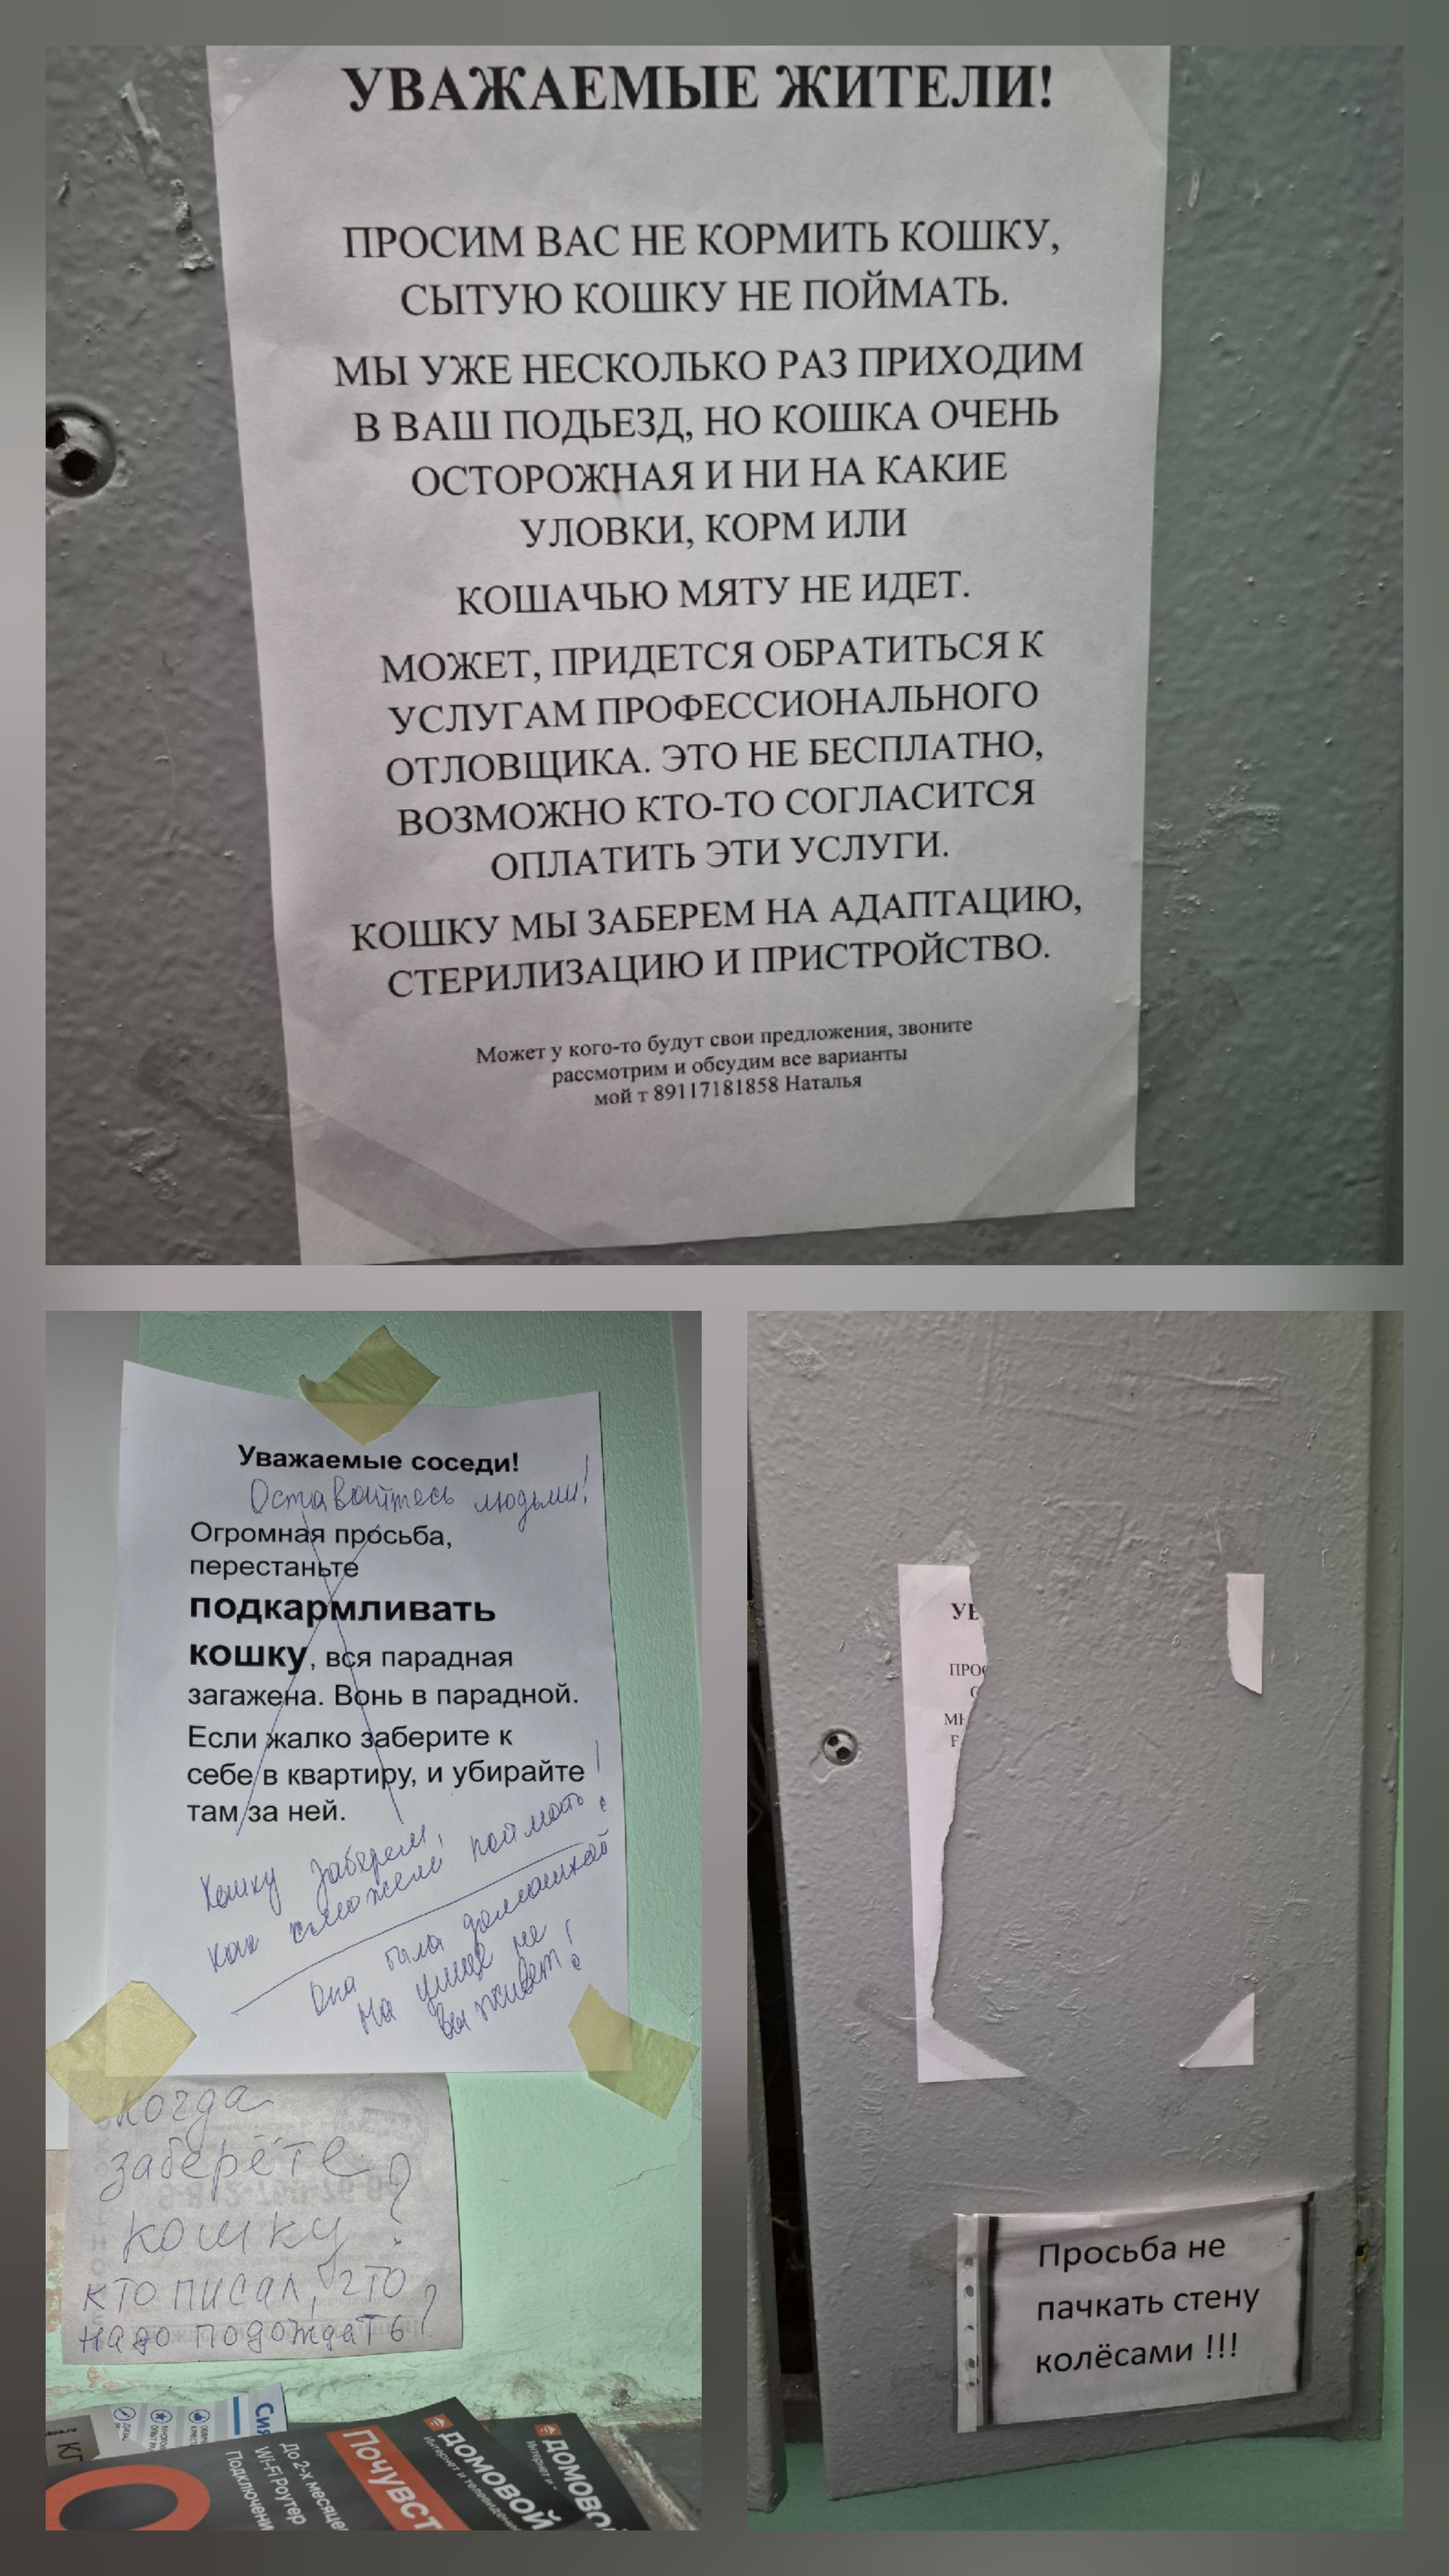 УВАЖАЕМЫЕ ЖИТЕЛИ!
ПРОСИМ ВАС НЕ КОРМИТЬ КОШКУ,
СЫТУЮ КОШКУ НЕ ПОЙМАТЬ.
МЫ УЖЕ НЕСКОЛЬКО РАЗ ПРИХОДИМ
В ВАШ ПОДЬЕЗД, НО КОШКА ОЧЕНЬ
ОСТОРОЖНАЯ И НИ НА КАКИЕ
УЛОВКИ, КОРМ ИЛИ
КОШАЧЬЮ МЯТУ НЕ ИДЕТ.
МОЖЕТ, ПРИДЕТСЯ ОБРАТИТЬСЯ К
УСЛУГАМ ПРОФЕССИОНАЛЬНОГО
ОТЛОВЩИКА. ЭТО НЕ БЕСПЛАТНО,
ВОЗМОЖНО КТО-ТО СОГЛАСИТСЯ
ОПЛАТИТЬ ЭТИ УСЛУГИ.
КОШКУ МЫ ЗАБЕРЕМ НА АДАПТАЦИЮ,
СТЕРИЛИЗАЦИЮ И ПРИСТРОЙСТВО.
Может у кого-то будут свои предложения, звоните
рассмотрим и обсудим все варианты
мой т 89117181858 Наталья
Уважаемые соседи!
Оставайтесь людьми!
Огромная просьба,
перестаньте
подкармливать
кошку, вся парадная
загажена. Вонь в парадной.
Если жалко заберите к
себе в квартиру, и убирайте
там за ней.
Кошку заберем,
как сможем поймать!
Она была домашней
На улице не
выживет!
когда
заберёте
кошку?
кто писал, что
надо подождать?
Сия
До 2-х месяце
Wi-Fi Роутер
Подключени
Почувст
ДОМОВОЙ
Интернет и телевидени
ДОМОВО
Интернет и
УВ
ПРОС
С
МЫ
В
Просьба не
пачкать стену
колёсами !!!